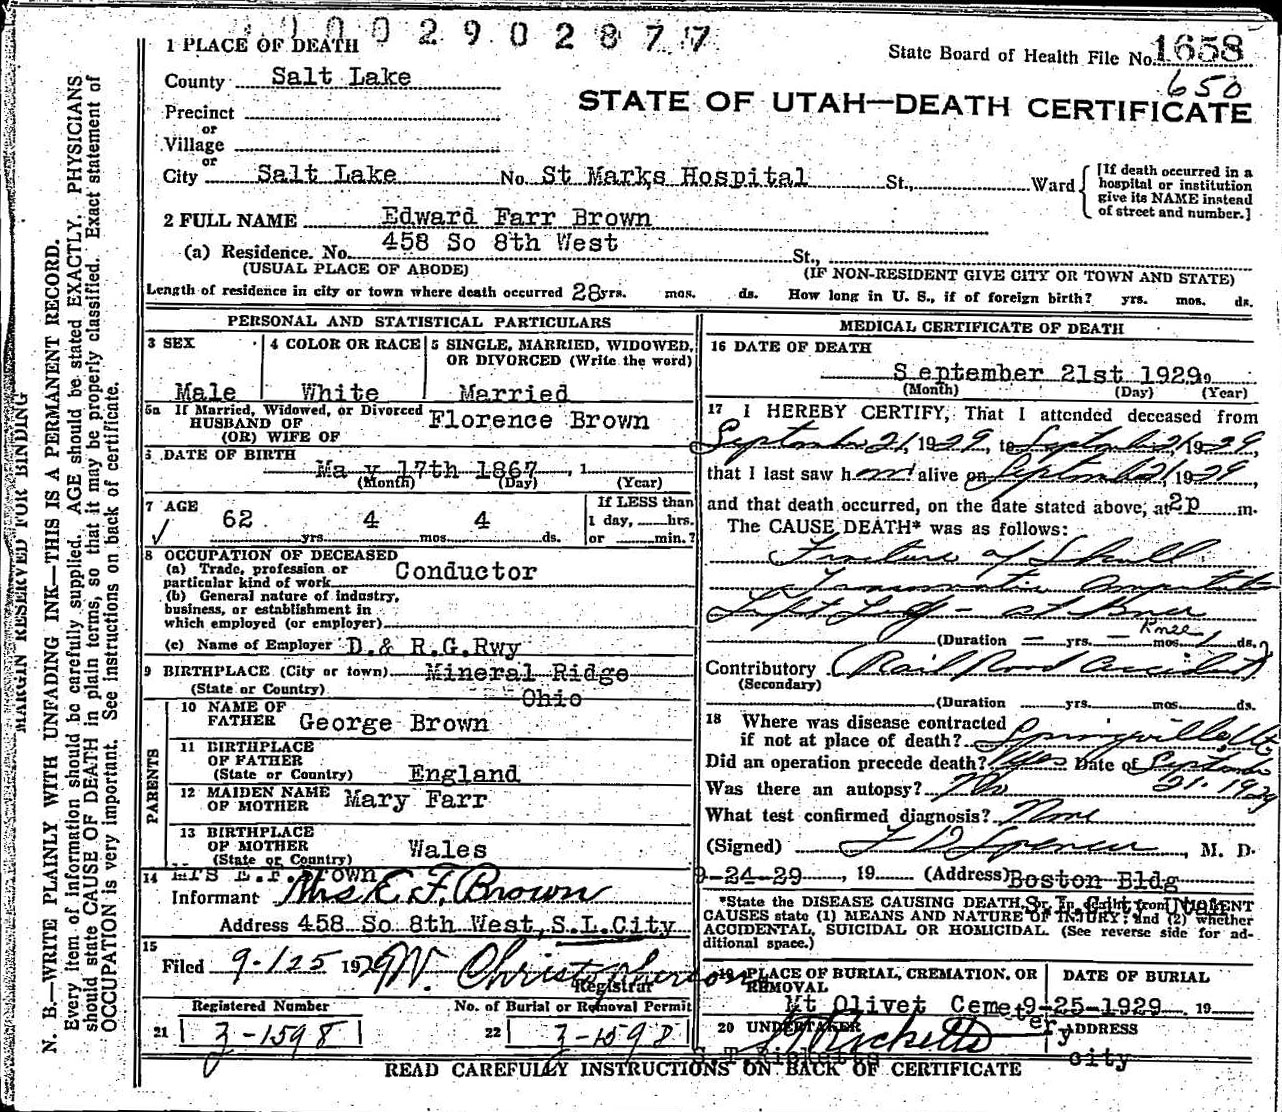 2 9 0 2 8 7 7
State Board of Health File No. 1658
650
STATE OF UTAH—DEATH CERTIFICATE
1 PLACE OF DEATH
County Salt Lake
Precinct
or
Village
or
City Salt Lake No. St Marks Hospital St., Ward
[If death occurred in a
hospital or institution
give its NAME instead
of street and number.]
2 FULL NAME Edward Farr Brown
(a) Residence. No. 458 So 8th West St.,
(USUAL PLACE OF ABODE) (IF NON-RESIDENT GIVE CITY OR TOWN AND STATE)
Length of residence in city or town where death occurred 28 yrs. mos. ds. How long in U. S., if of foreign birth? yrs. mos. ds.
PERSONAL AND STATISTICAL PARTICULARS
3 SEX
Male
4 COLOR OR RACE
White
5 SINGLE, MARRIED, WIDOWED,
OR DIVORCED (Write the word)
Married
5a If Married, Widowed, or Divorced
HUSBAND OF
(OR) WIFE OF
Florence Brown
6 DATE OF BIRTH
Ma y 17th 1867 , 1
(Month) (Day) (Year)
7 AGE
62 yrs. 4 mos. 4 ds.
If LESS than
1 day, hrs.
or min.?
8 OCCUPATION OF DECEASED
(a) Trade, profession or
particular kind of work Conductor
(b) General nature of industry,
business, or establishment in
which employed (or employer)
(c) Name of Employer D.& R.G.Rwy
9 BIRTHPLACE (City or town) Mineral Ridge
(State or Country) Ohio
PARENTS
10 NAME OF
FATHER George Brown
11 BIRTHPLACE
OF FATHER
(State or Country) England
12 MAIDEN NAME
OF MOTHER Mary Farr
13 BIRTHPLACE
OF MOTHER
(State or Country) Wales
14 Mrs E.F.Brown
Informant Mrs E. F. Brown
Address 458 So 8th West, S.L.City
15
Filed 9-25 1929 W. Christopherson
Registrar
Registered Number
21 3-1598
No. of Burial or Removal Permit
22 3-1598
MEDICAL CERTIFICATE OF DEATH
16 DATE OF DEATH
September 21st 1929
(Month) (Day) (Year)
17 I HEREBY CERTIFY, That I attended deceased from
September 21, 1929, to September 21 1929,
that I last saw him alive on September 21, 1929,
and that death occurred, on the date stated above, at 2p m.
The CAUSE DEATH* was as follows:
Fracture of Skull
Traumatic Amputation
Left Leg - at Knee
Knee
(Duration — yrs. — mos. 1 ds.
Contributory (Rail Road accident)
(Secondary)
(Duration yrs. mos. ds.
18 Where was disease contracted
if not at place of death? Springville, Ut
Did an operation precede death? yes Date of September
21. 1929
Was there an autopsy? No
What test confirmed diagnosis? None
(Signed) F D Spencer, M. D.
9-24-29 , 19 (Address) Boston Bldg
S. L. City, Utah
*State the DISEASE CAUSING DEATH, or, in deaths from VIOLENT
CAUSES state (1) MEANS AND NATURE OF INJURY; and (2) whether
ACCIDENTAL, SUICIDAL OR HOMICIDAL. (See reverse side for ad-
ditional space.)
19 PLACE OF BURIAL, CREMATION, OR
REMOVAL
Mt Olivet Cemetery
DATE OF BURIAL
9-25-1929 19
20 UNDERTAKER
S. T. Ricketts
ADDRESS
city
READ CAREFULLY INSTRUCTIONS ON BACK OF CERTIFICATE
MARGIN RESERVED FOR BINDING
N. B.—WRITE PLAINLY WITH UNFADING INK—THIS IS A PERMANENT RECORD.
Every item of information should be carefully supplied. AGE should be stated EXACTLY. PHYSICIANS
should state CAUSE OF DEATH in plain terms, so that it may be properly classified. Exact statement of
OCCUPATION is very important. See instructions on back of certificate.